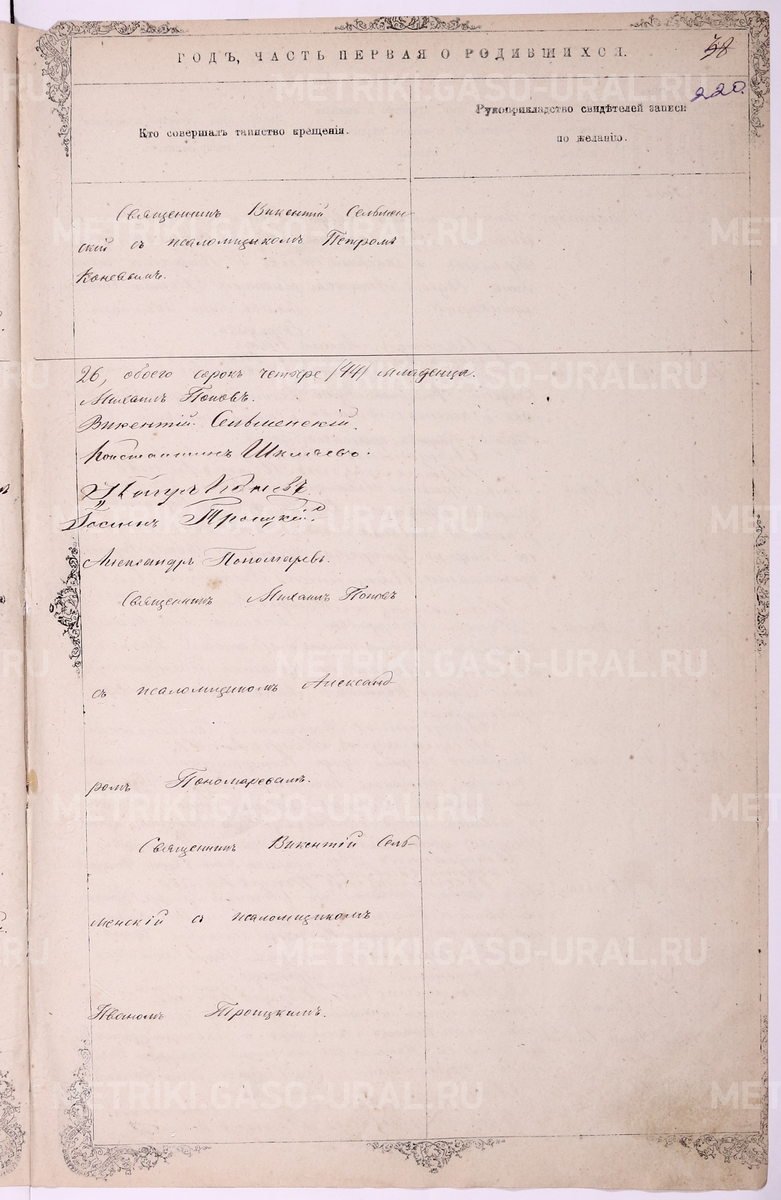 ГОДЪ, ЧАСТЬ ПЕРВАЯ О РОДИВШИХСЯ.
220.
Кто совершалъ таинство крещенія.
Рукоприкладство свидѣтелей записи
по желанію.
Священникъ Викентій Сельмен-
скій съ псаломщикомъ Петромъ
26, обоего сорокъ четыре /44/ младенца.
Михаилъ Поповъ.
Викентій Сельменскій.
Константинъ
Троицкій
Александръ Пономаревъ.
Священникъ Михаилъ Поповъ
съ псаломщикомъ Александ-
ромъ Пономаревымъ.
Священникъ Викентій Сель-
менскій съ псаломщикомъ
Иваномъ Троицкимъ.
METRIKI.GASO-URAL.RU